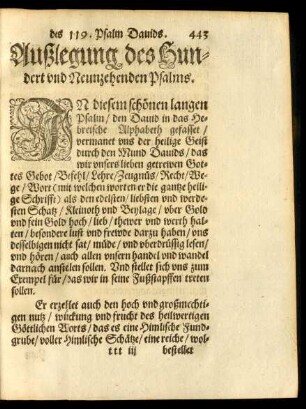 des 119. Psalm Dauids. 443
Außlegung des Hun-
dert vnd Neunzehenden Psalms.
IN diesem schönen langen
Psalm / den Dauid in das He-
breische Alphabeth gefasset /
vermanet vns der heilige Geist
durch den Mund Dauids / das
wir vnsers lieben getrewen Got-
tes Gebot / Befehl / Lehre / Zeugnüs / Recht / We-
ge / Wort (mit welchen worten er die gantze heili-
ge Schrifft) als den edelsten / liebsten vnd werde-
sten Schatz / Kleinoth vnd Beylage / vber Gold
vnd fein Gold hoch / lieb / thewer vnd werth hal-
ten / besondere lust vnd frewde darzu haben / vns
desselbigen nicht sat / müde / vnd vberdrüssig lesen /
vnd hören / auch allen vnsern handel vnd wandel
darnach anstellen sollen. Vnd stellet sich vns zum
Exempel für / das wir in seine Fußstapffen treten
sollen.
Er erzelet auch den hoch vnd großmechti-
gen nutz / würckung vnd frucht des heilwertigen
Göttlichen Worts / das es eine Himlische Fund-
grube / voller Himlische Schätze / eine reiche / wol-
ttt iij bestellet